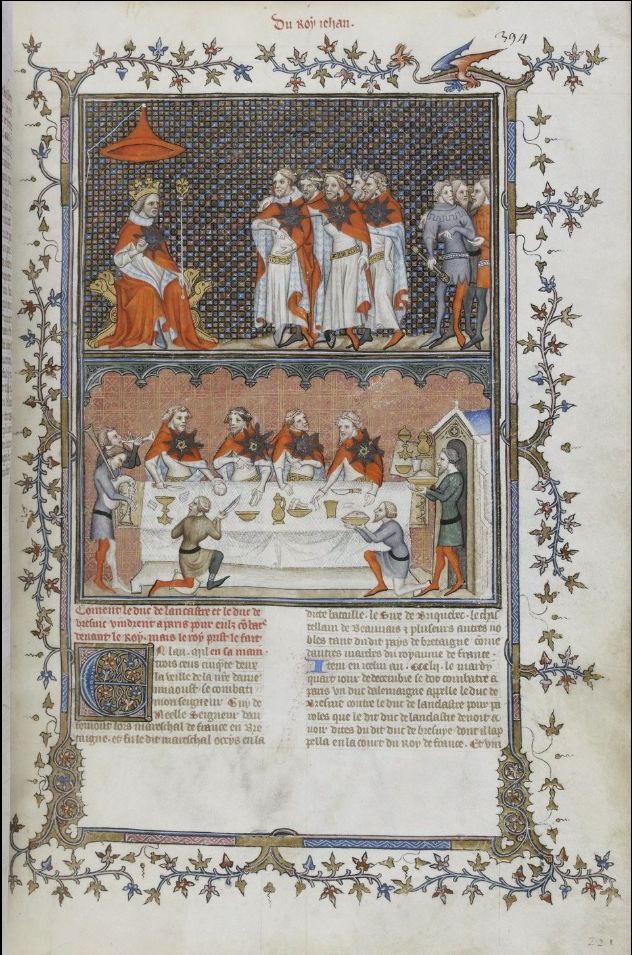 Du Roy iehan.
394
Coment le duc de lancastre et le duc de
bresuic vindrent a paris pour eulz cõbat
devant le Roy. mais le roy prist le fait
en sa main
En lan. mil
trois cens cinqte deux
la veille de la nre dame
miaoust. se combati
monseigneur Guy de
Neelle Seigneur dau
temont lors mareschal de france en Bre
taigne. et fu le dit mareschal occys en la
dicte bataille. le Sire de Briquebec. le chas
tellain de Beauuais et plusieurs autres no
bles tant du dit pays de bretaigne cõme
dautres marches du royaume de france.
Item en icelui an. CCClij. le mardy
quart iour de decembre se dot combatre a
paris vn duc dalemaigne appelle le duc de
Bresuic contre le duc de lanclastre pour pa
roles que le dit duc de lanclastre deuoit a
uoir dites du dit duc de bresuyc. dont il lap
pella en la court du Roy de france. Et vin
221